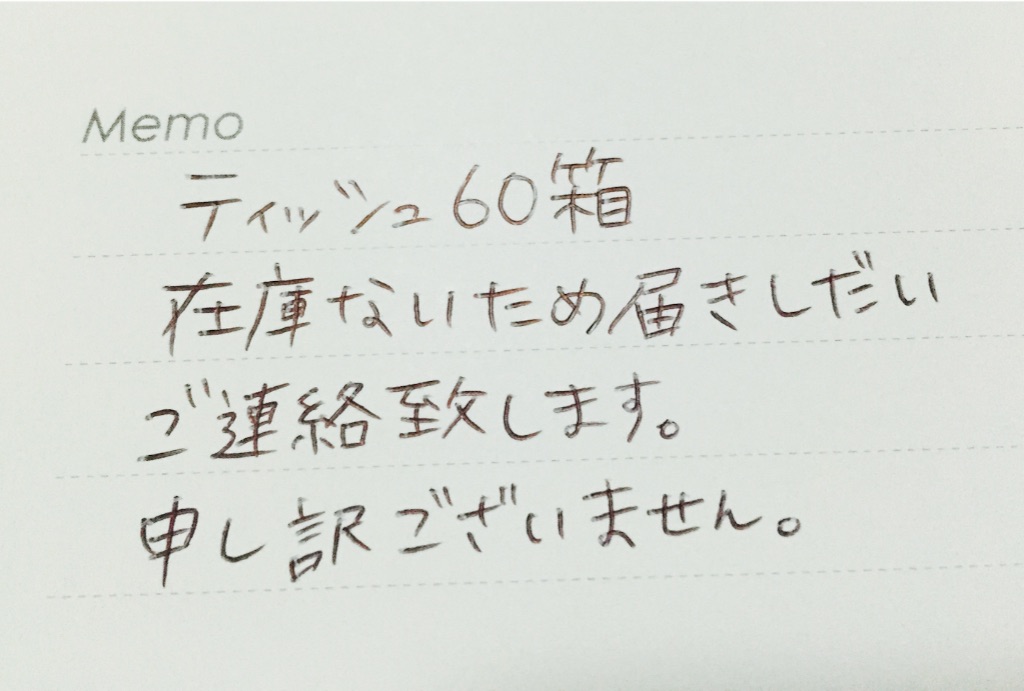 Memo
ティッシュ60箱
在庫ないため届きしだい
ご連絡致します。
申し訳ございません。